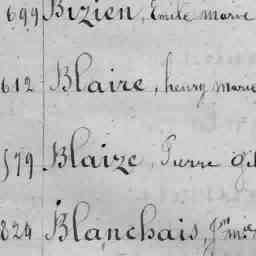 699 Bizien, Emile marie
612 Blaire, henry marie
579 Blaize, Pierre
824 Blanchais, Jn mie